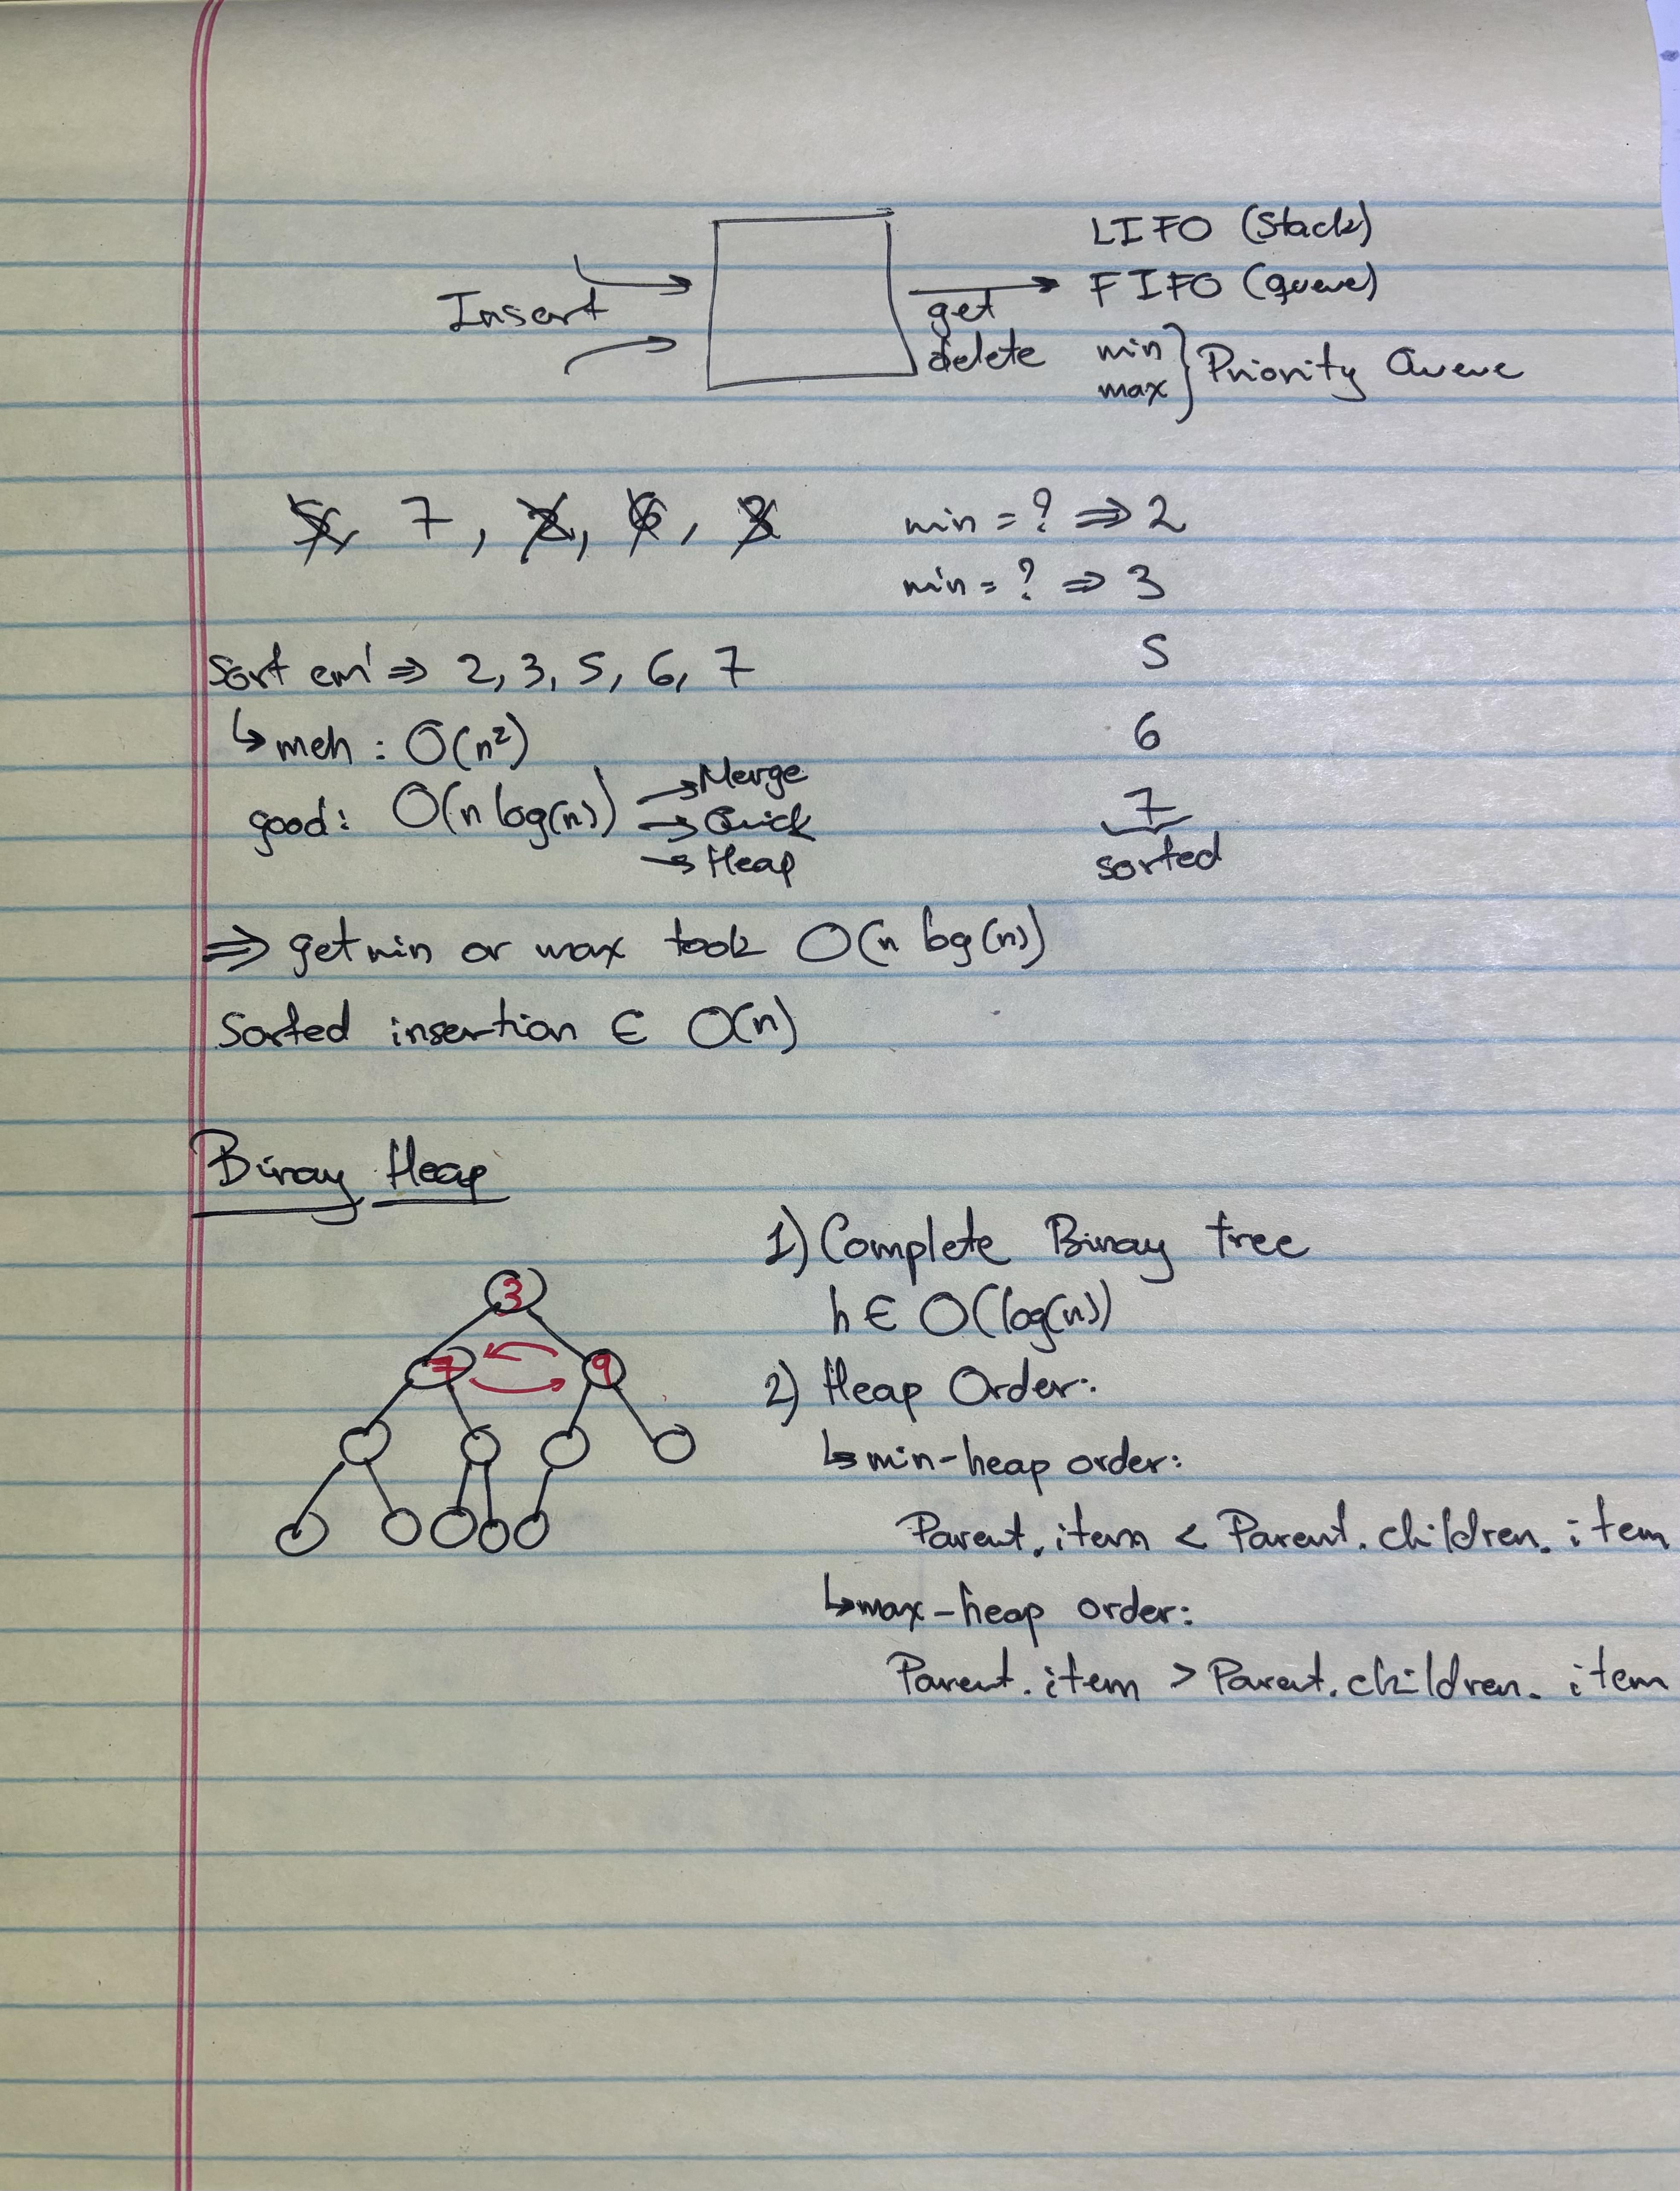 LIFO (Stack)
Insert
get
FIFO (queue)
delete
min
max
Priority Queue
5, 7, 2, 6, 3
min = ? ⇒ 2
min = ? ⇒ 3
5
Sort em' ⇒ 2, 3, 5, 6, 7
6
↳ meh : O(n²)
good: O(n log(n))
→ Merge
→ Quick
→ Heap
7
sorted
⇒ get min or max took O(n log(n))
Sorted insertion ∈ O(n)
Binay Heap
1) Complete Binay tree
h ∈ O(log(n))
2) Heap Order:
↳ min-heap order:
Parent.item < Parent.children.item
↳ max-heap order:
Parent.item > Parent.children.item
3
7
9